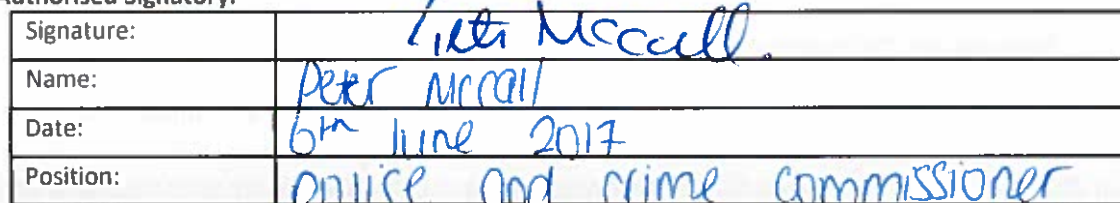 Authorised Signatory:
Signature: Peter McCall.
Name: Peter McCall
Date: 6th June 2017
Position: police and crime commissioner